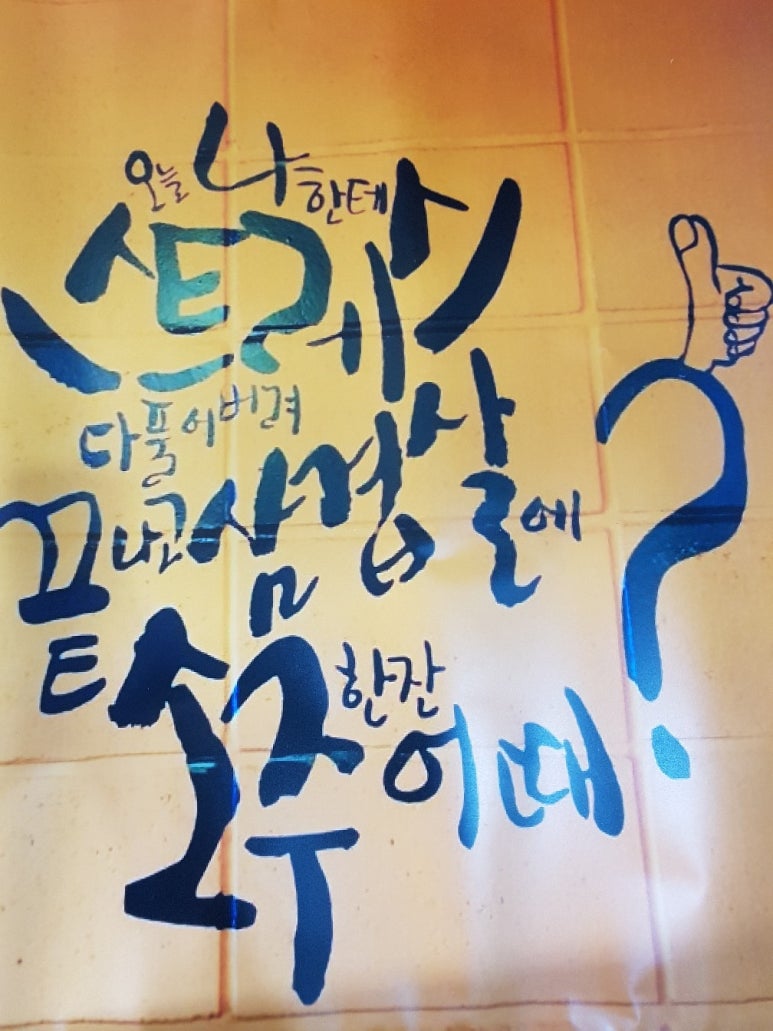 오늘 나한테
스트레스
다 풀어버려
끝나고 삼겹살에
소주 한잔 어때?